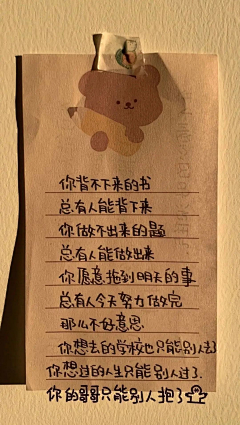 你背不下来的书
总有人能背下来
你做不出来的题
总有人能做出来
你愿意拖到明天的事
总有人今天努力做完
那么不好意思
你想去的学校也只能别人去了
你想过的人生只能别人过了
你的哥哥只能别人抱了